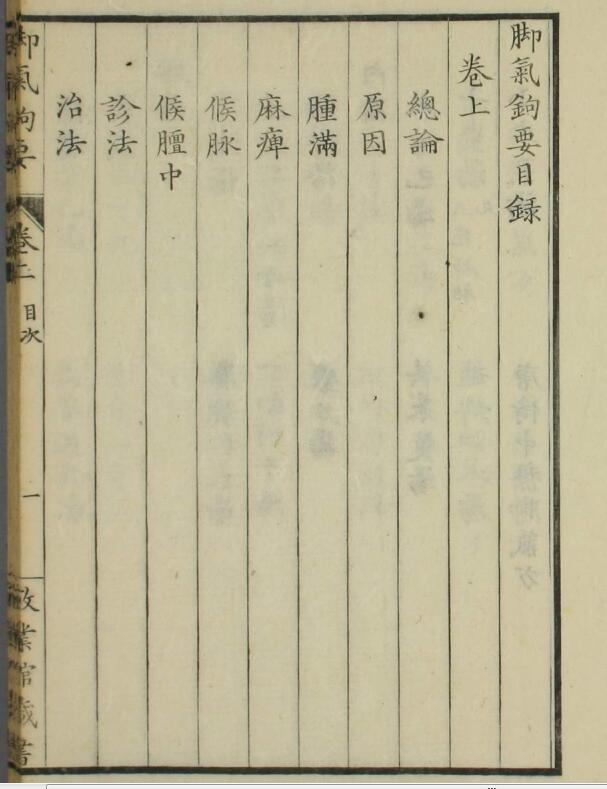 脚氣鉤要目録
卷上
總論
原因
腫滿
麻痺
候脉
候膻中
診法
治法
脚氣鉤要
卷上
目次
一
業館藏書